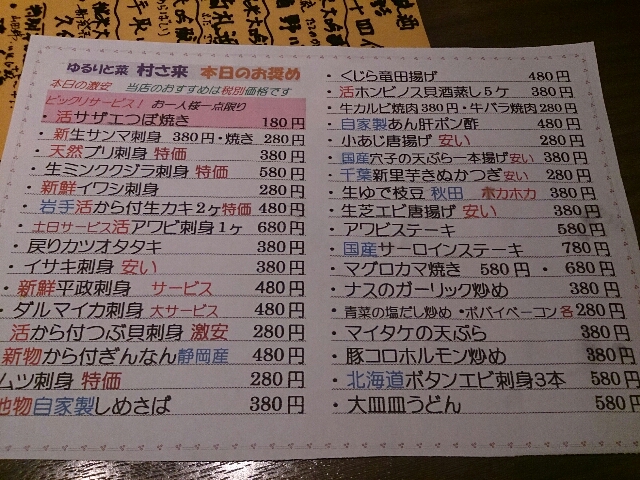 ゆるりと菜 村さ来 本日のお奨め
本日の激安 当店のおすすめは税別価格です
ビックリサービス！ お一人様一点限り
・活サザエつぼ焼き 180円
・新生サンマ刺身 380円・焼き 280円
・天然ブリ刺身 特価 380円
・生ミンククジラ刺身 特価 580円
・新鮮イワシ刺身 280円
・岩手活から付生カキ2ヶ特価 480円
・土日サービス活アワビ刺身1ヶ 680円
・戻りカツオタタキ 380円
・イサキ刺身 安い 380円
・新鮮平政刺身 サービス 480円
・ダルマイカ刺身 大サービス 480円
活から付つぶ貝刺身 激安 280円
新物から付ぎんなん静岡産 480円
ムツ刺身 特価 280円
地物自家製しめさば 380円
・くじら竜田揚げ 480円
・活ホンビノス貝酒蒸し5ヶ 380円
・生カルビ焼肉380円・牛バラ焼肉280円
・自家製あん肝ポン酢 480円
・小あじ唐揚げ 安い 280円
・国産穴子の天ぷら一本揚げ安い 380円
・千葉新里芋きぬかつぎ安い 280円
・生ゆで枝豆 秋田 ホカホカ 380円
・生芝エビ唐揚げ 安い 380円
・アワビステーキ 580円
・国産サーロインステーキ 780円
・マグロカマ焼き 580円・680円
・ナスのガーリック炒め 380円
・青菜の塩だし炒め・ポパイベーコン各280円
・マイタケの天ぷら 380円
・豚コロホルモン炒め 380円
・北海道ボタンエビ刺身3本 580円
・大皿皿うどん 580円